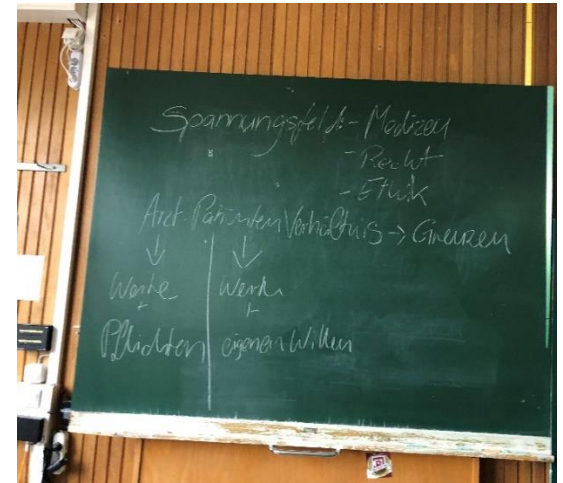 Spannungsfeld - Medizin
- Recht
- Ethik
Arzt-Patienten Verhältnis → Grenzen
↓ ↓
Werte Werte
+ +
Pflichten eigenen Willen